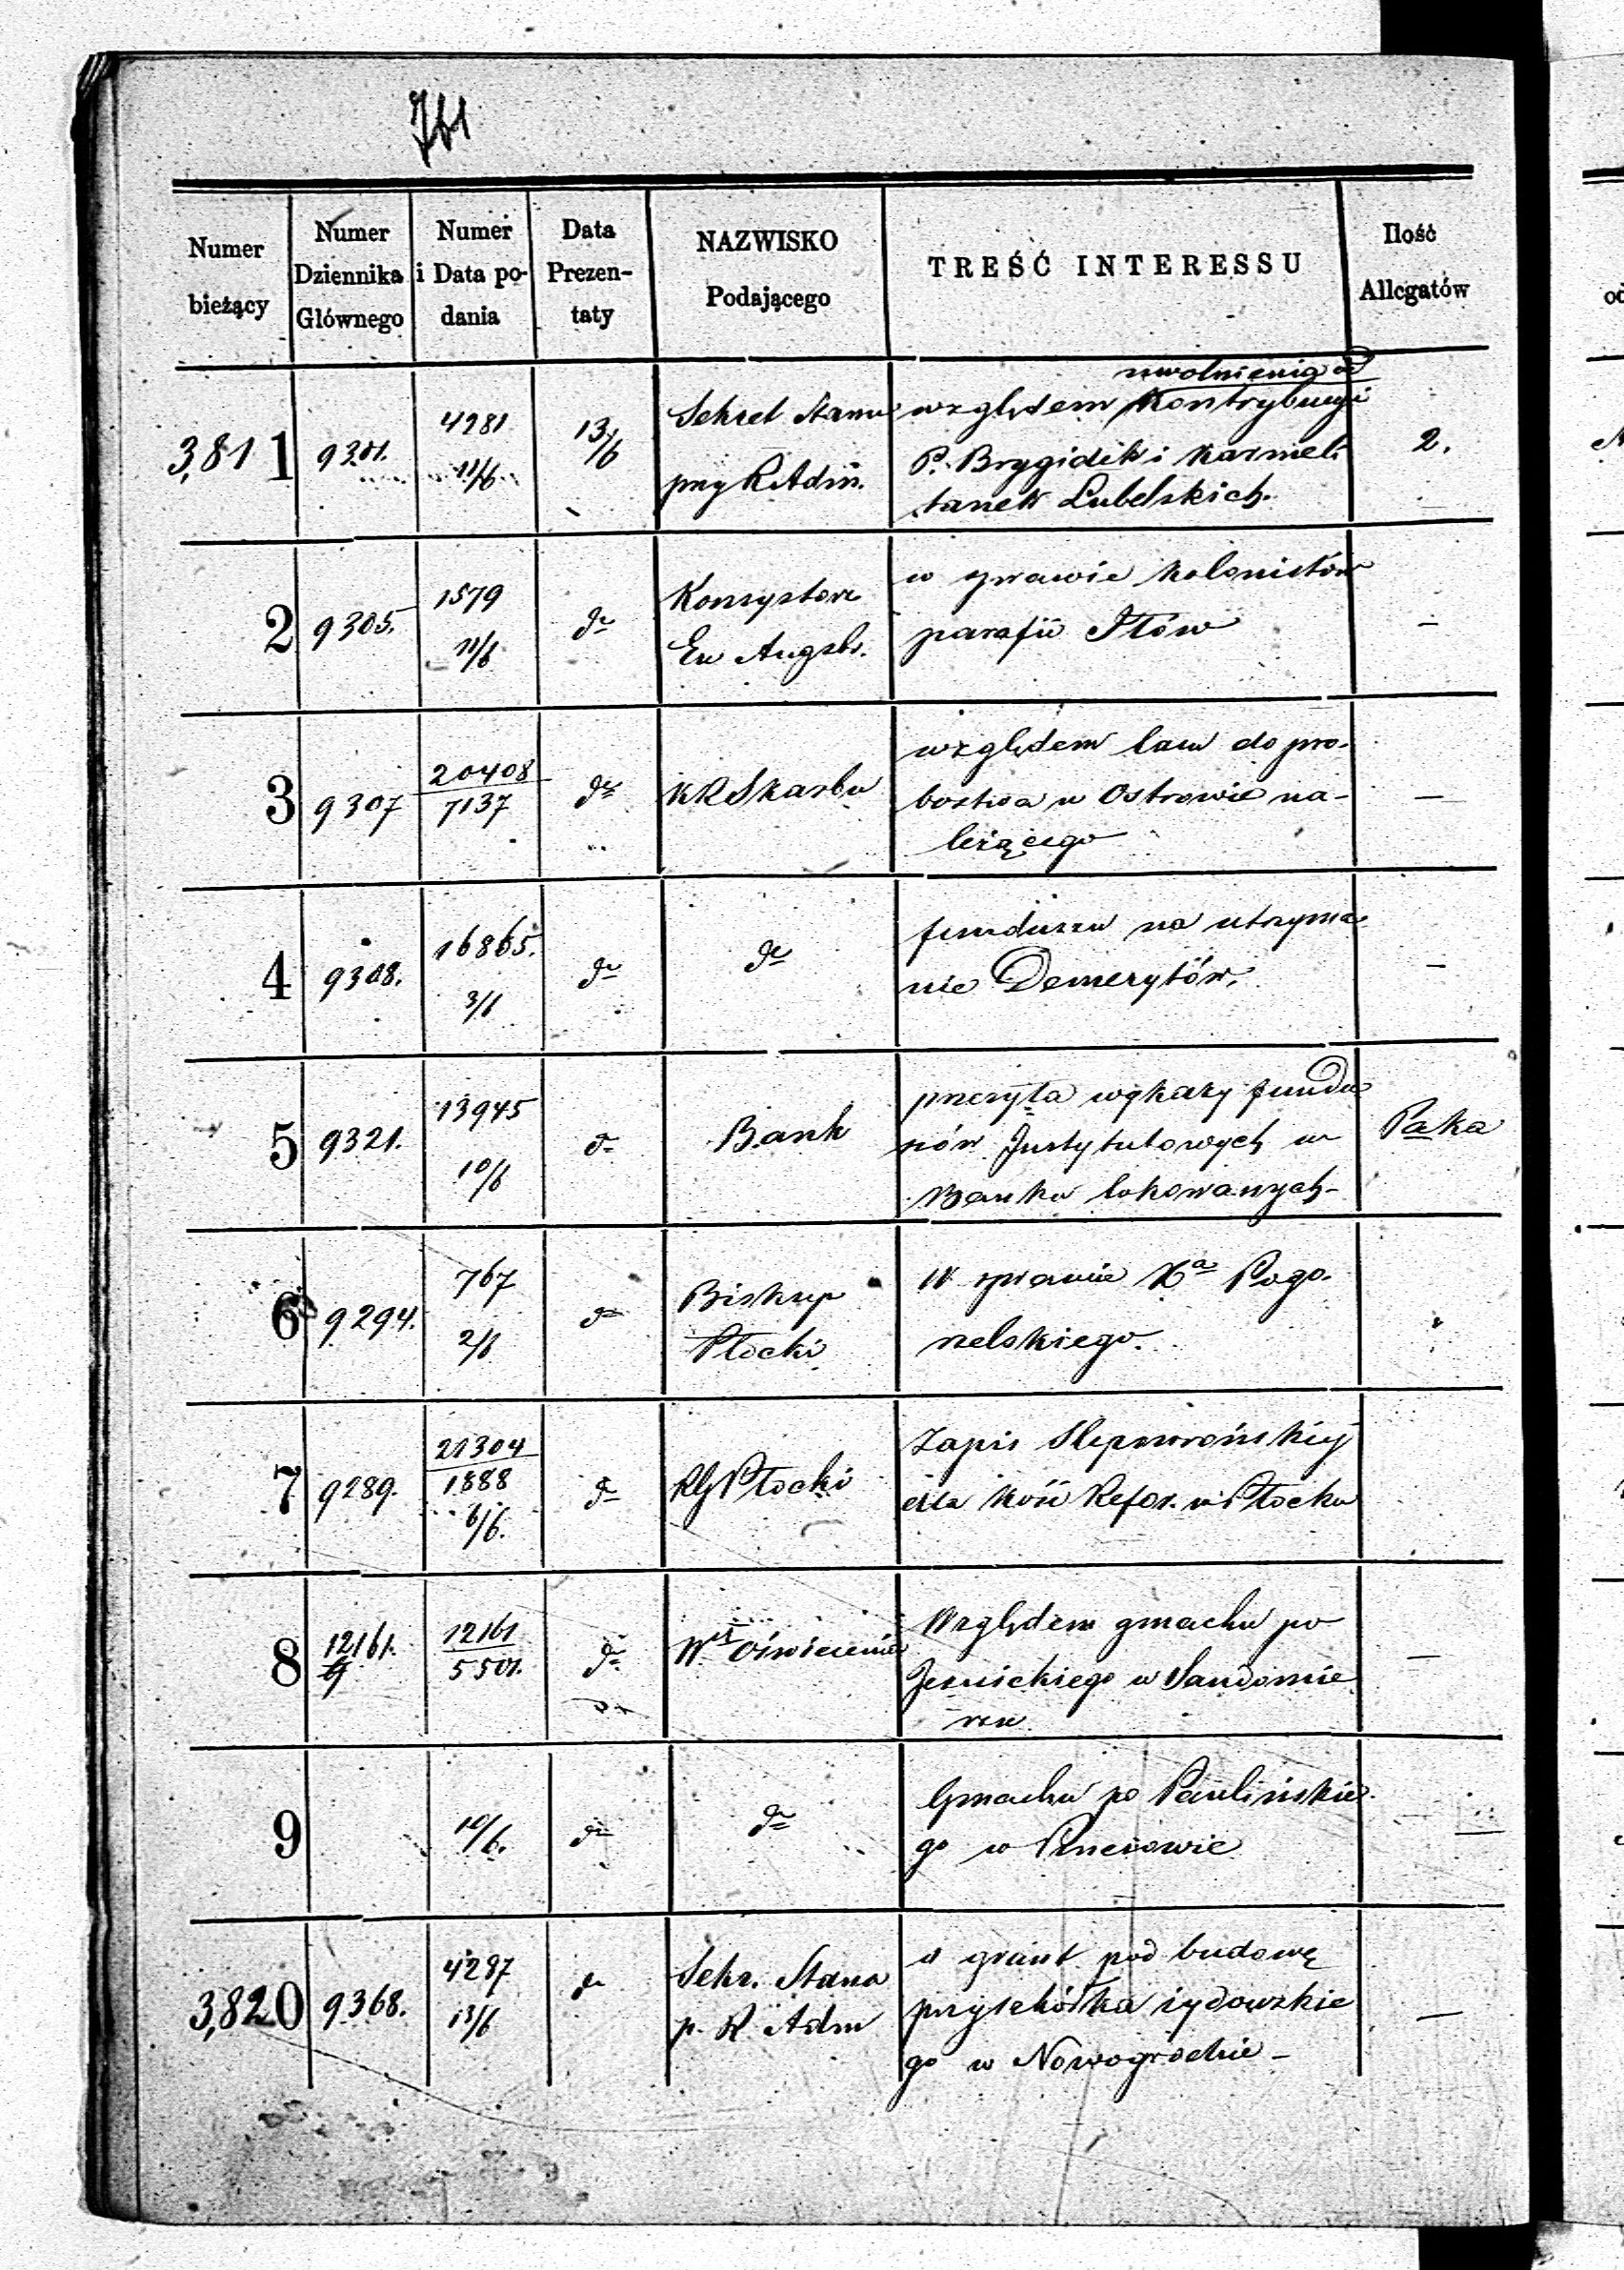 761
Numer bieżący
Numer Dziennika Głównego
Numer i Data podania
Data Prezentaty
NAZWISKO Podającego
TREŚĆ INTERESSU
Ilość Allegatów
3,811
9301.
4281
11/6
13/6
Sekret Stanu
przy RAdm.
uwolnienia od
względem Kontrybucyi
P. Brygidek i Karmeli
tanek Lubelskich.
2.
2
9305.
1579
11/6
do
Konsystorz
Ew Augsb.
w sprawie kolonistów
parafii Iłów
–
3
9307
20408
7137
do
KRSkarbu
względem lasu do pro-
bostwa w Ostrowie na-
leżącego
–
4
9308.
16865.
3/6
do
do
funduszu na utrzyma
nie Demerytów.
–
5
9321.
13945
10/6
do
Bank
przesyła wykazy fundu
szów Instytutowych w
Banku lokowanych-
Paka
6
9294.
767
2/6
do
Biskup
Płocki
W sprawie Xa Pogo-
rzelskiego.
7
9289.
21304
1888
6/6.
do
RGPłocki
Zapis Slepowrońskiej
dla Kość Refor. w Płocku
8
12161.
12161
5501.
do
Wł Oświecenia
Względem gmachu po
Jezuickiego w Sandomie
rzu
–
9
10/6.
do
do
Gmachu po Paulińskie-
go w Pinczowie
–
3,820
9368.
4287
13/6
do
Sekr. Stanu
p. R Adm
o grunt pod budowę
przytułka żydowskie
go w Nowogrodzie –
–